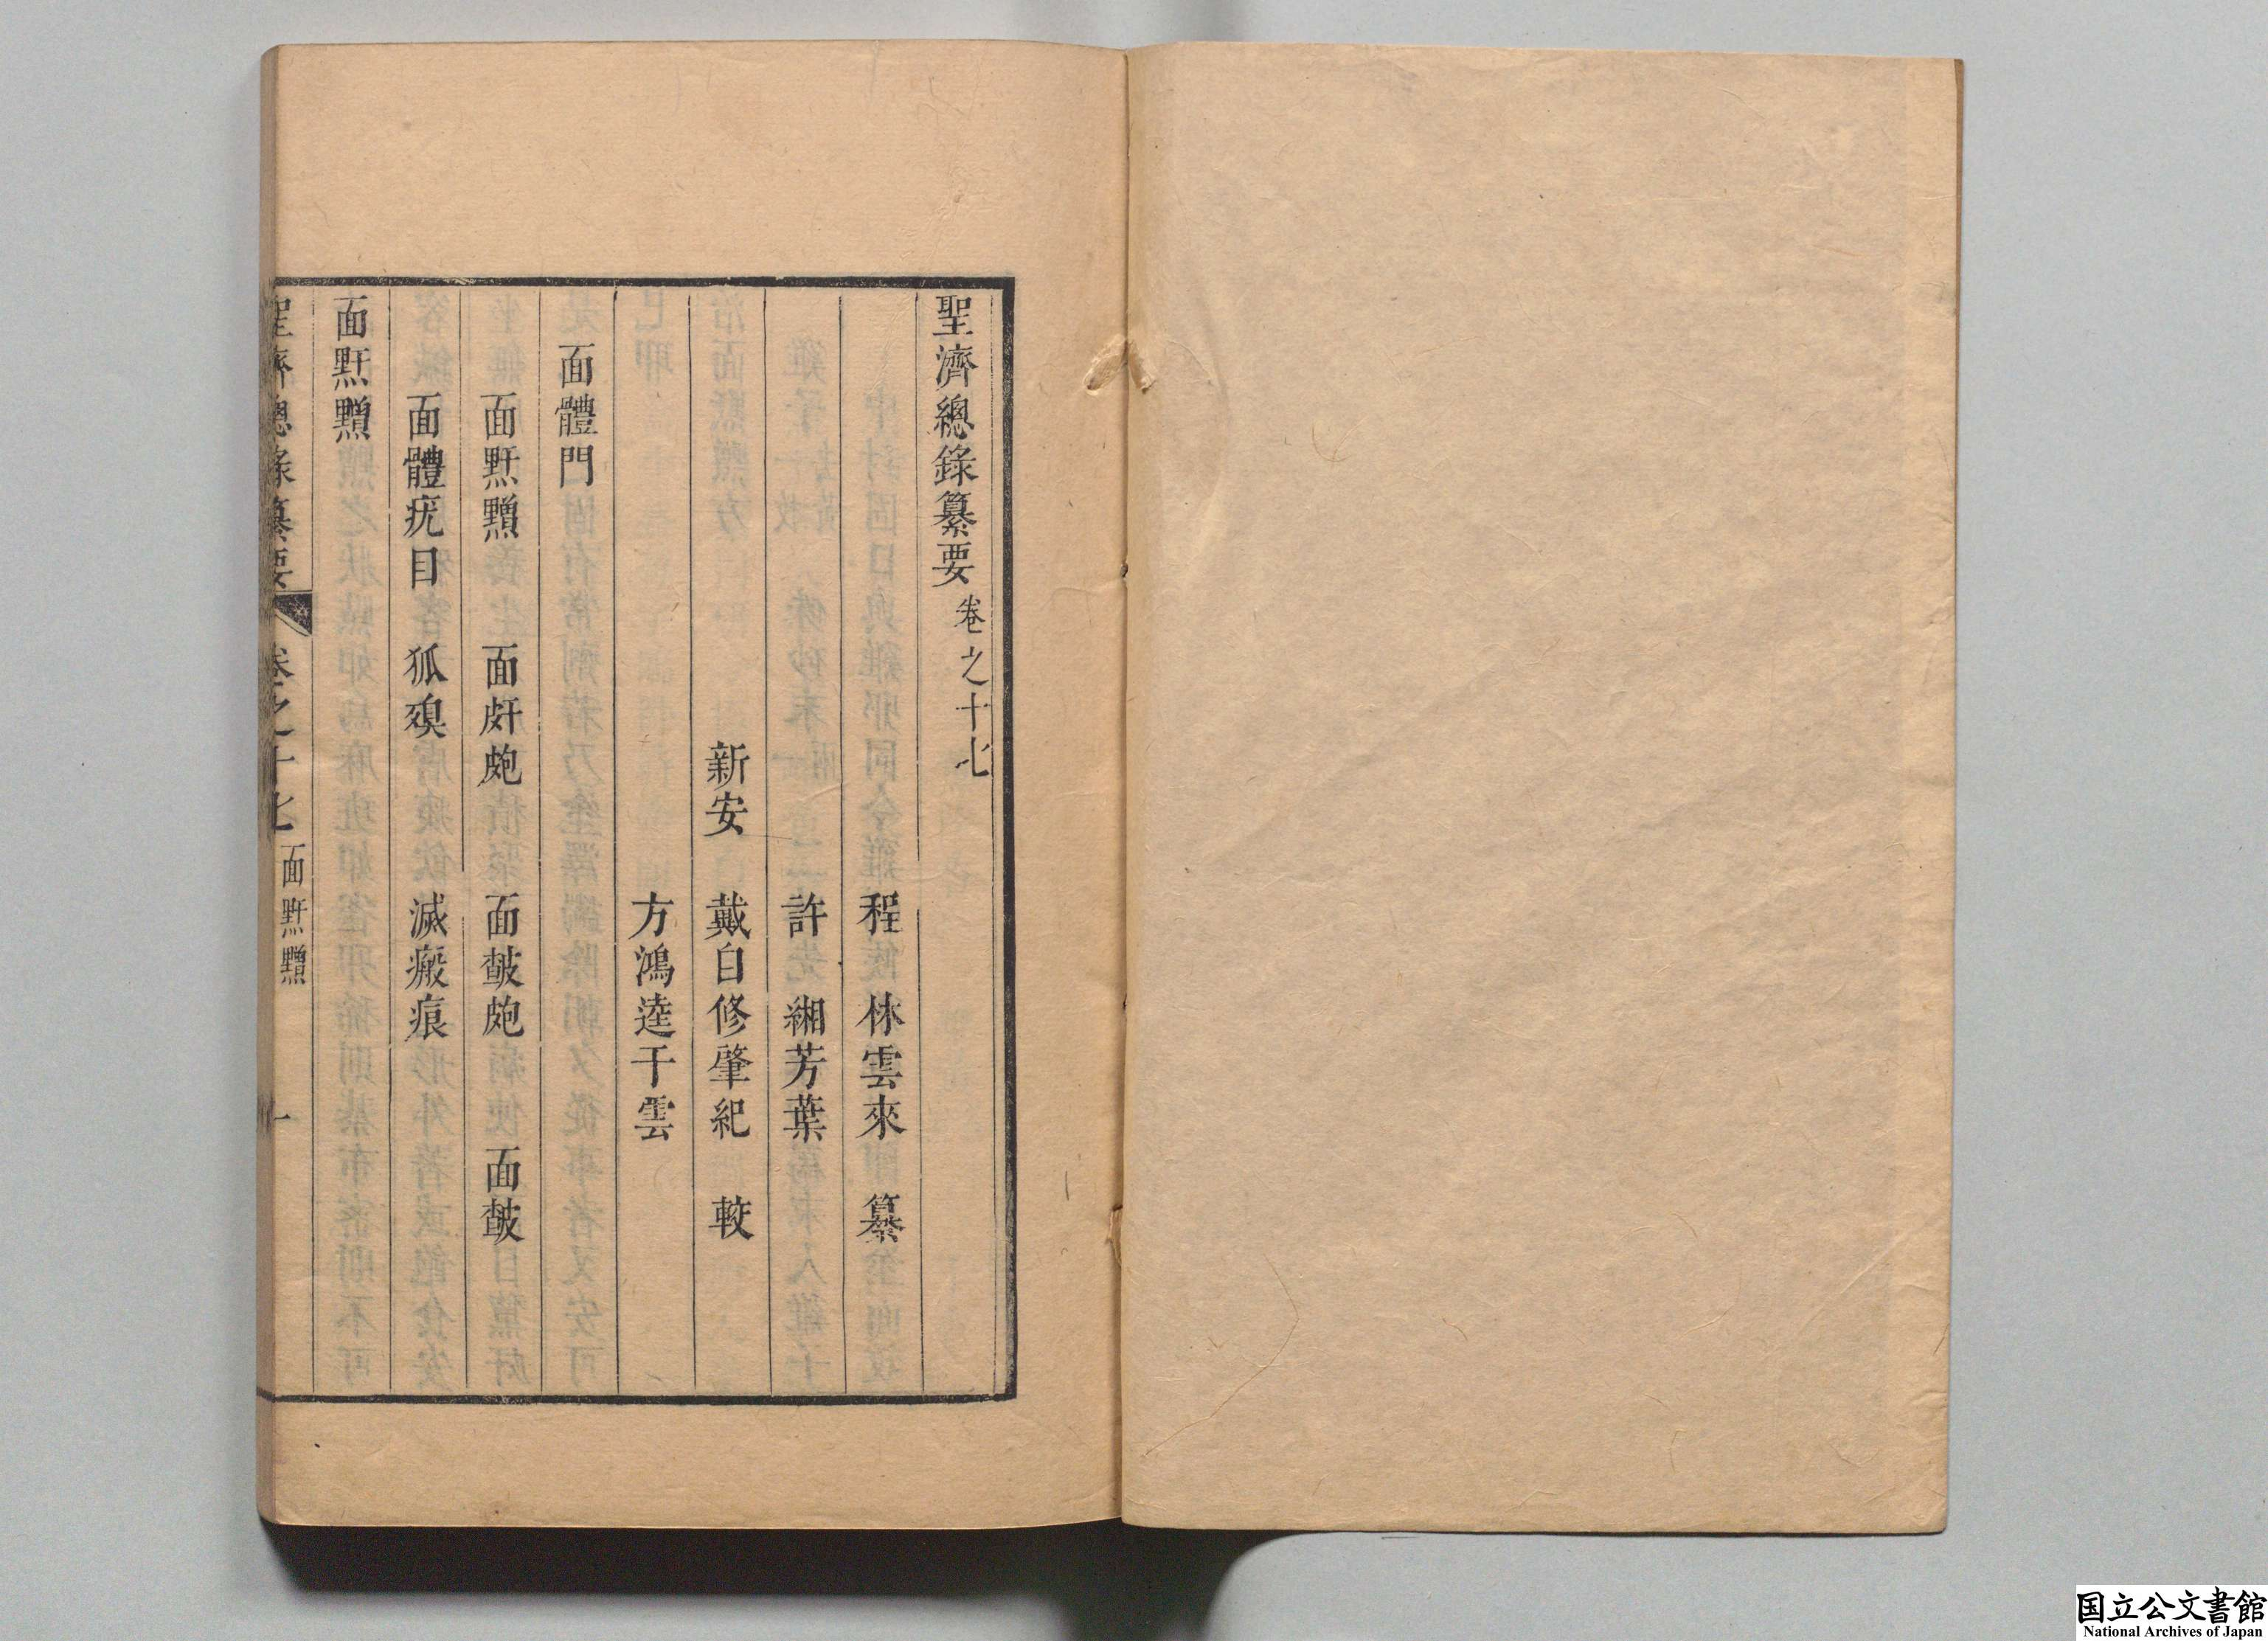 聖濟總錄纂要 卷之十七
程 林雲來 纂
許 緗芳葉
新安 戴自修肇紀 較
方鴻逵干雲
面體門
面䵟䵳 面皯皰 面皻皰 面皻
面體疣目 狐臭 滅瘢痕
面䵟䵳
聖濟總錄纂要 卷之十七 面䵟䵳 一
国立公文書館
National Archives of Japan